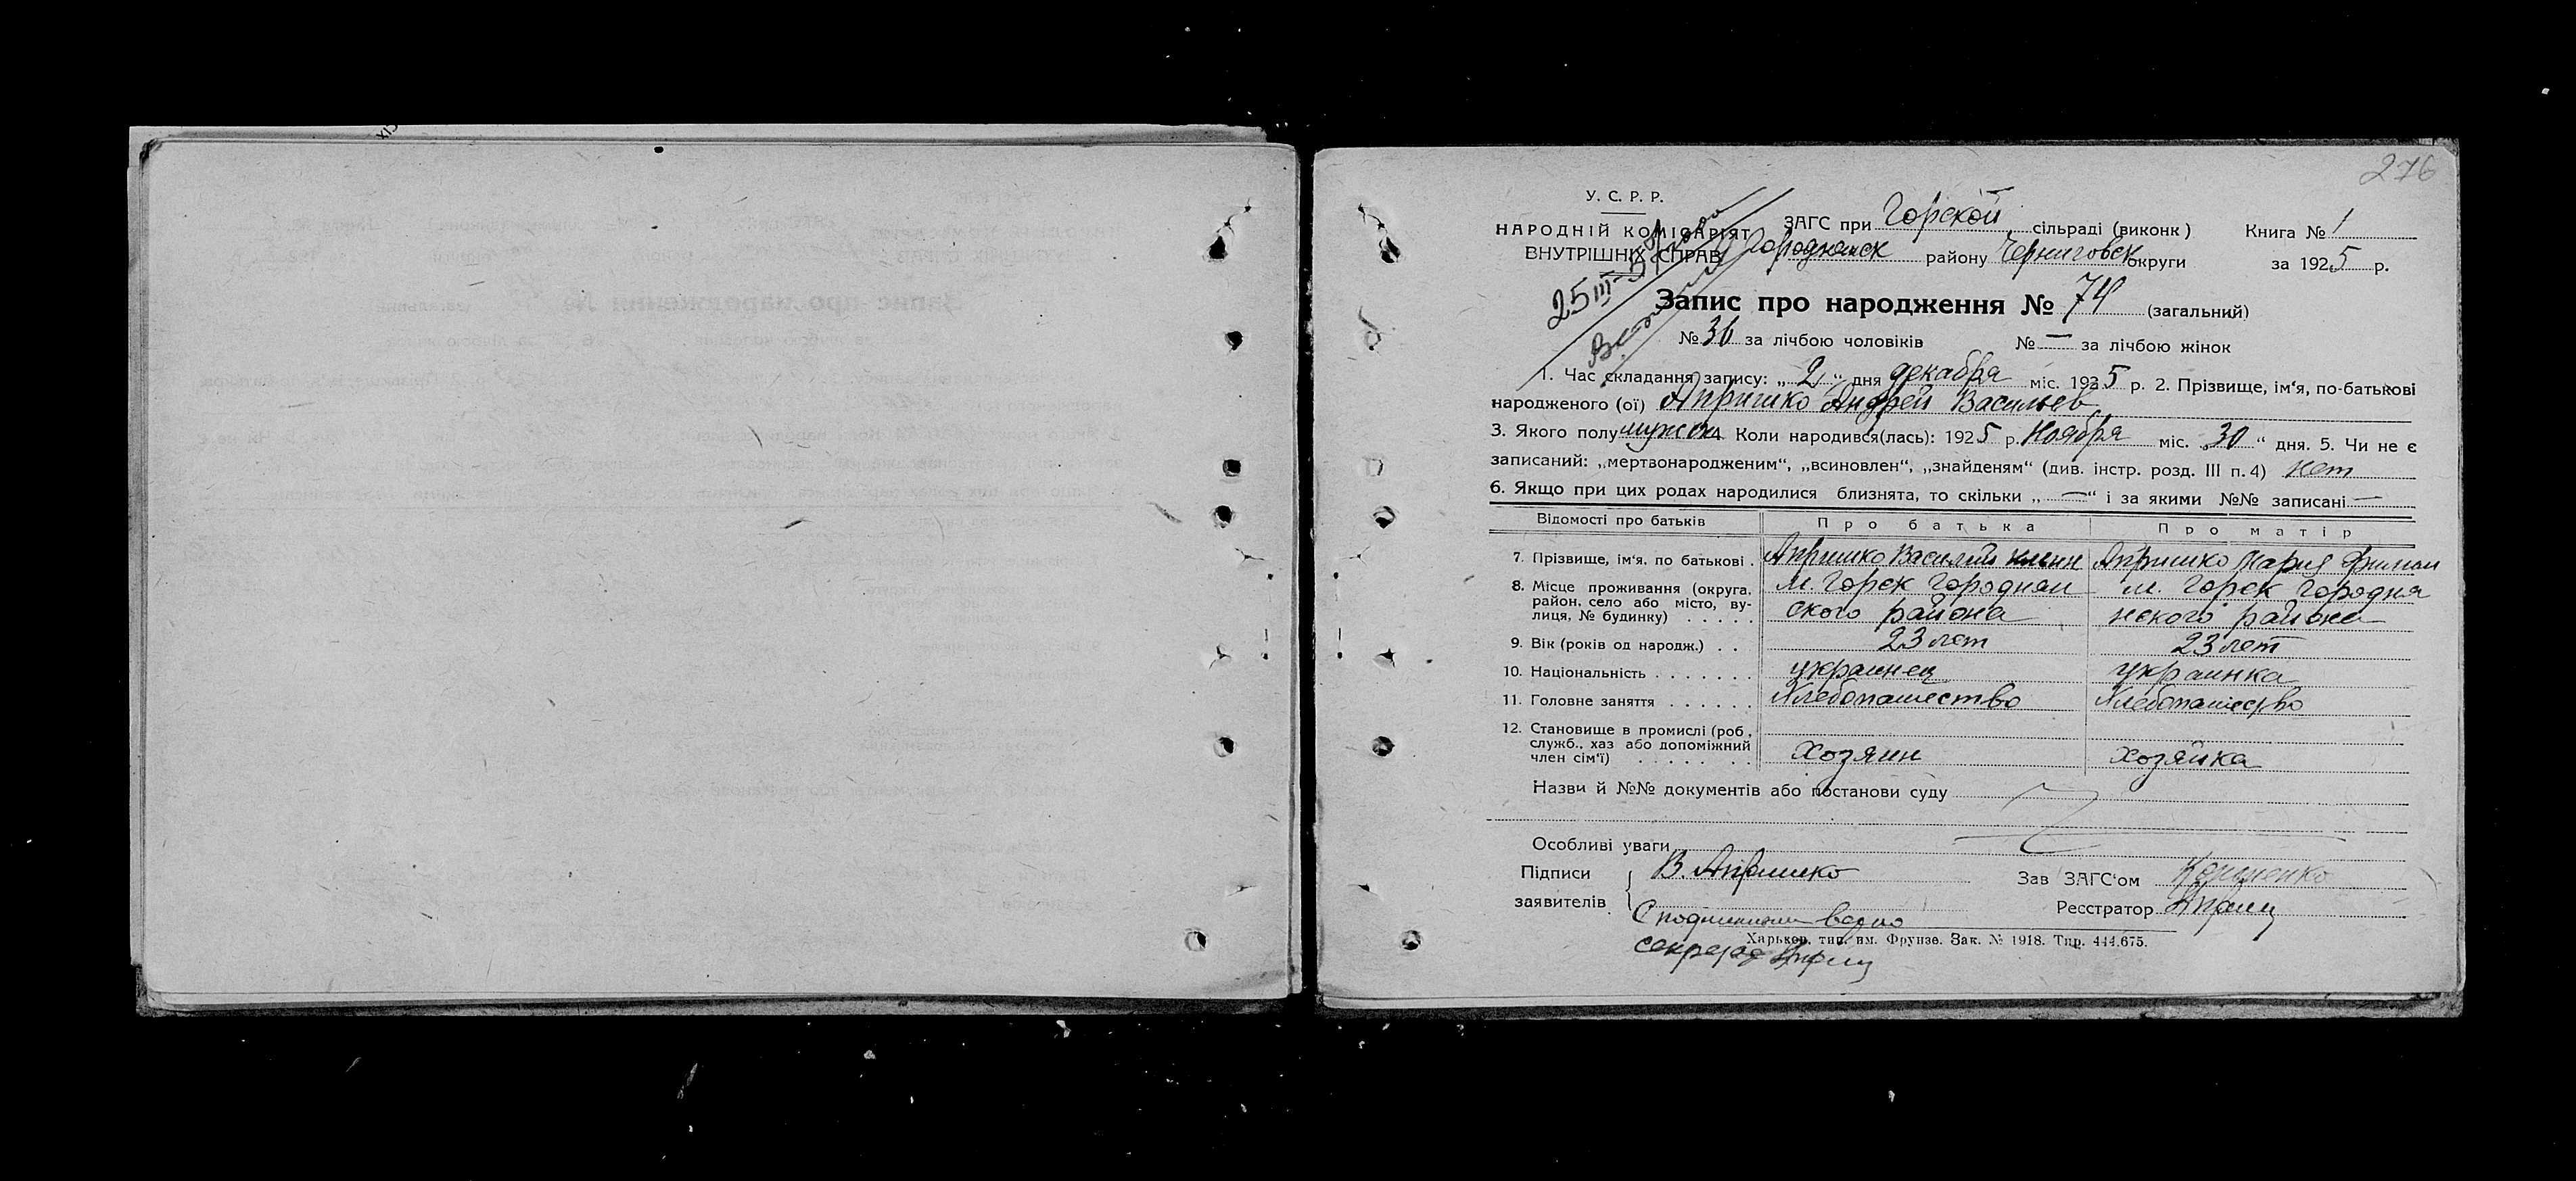 276
У. С. Р. Р.
НАРОДНІЙ КОМІСАРІЯТ
ВНУТРІШНІХ СПРАВ
ЗАГС при Горской сільраді (виконк)
Городнянск району Черниговск округи
Книга № 1
за 1925 р.
25 III
Запис про народження № 74 (загальний)
№ 36 за лічбою чоловіків № — за лічбою жінок
1. Час складання запису: „ 2 “ дня декабря міс. 1925 р. 2. Прізвище, ім‘я, по-батькові
народженого (ої) Апришко Андрей Васильев
3. Якого полу мужск 4 Коли народився(лась): 1925 р. Ноября міс. „ 30 “ дня. 5. Чи не є
записаний: „мертвонародженим“, „всиновлен“, „знайденям“ (див. інстр. розд. III п. 4) нет
6. Якщо при цих родах народилися близнята, то скільки „ — “ і за якими №№ записані —
Відомості про батьків Про батька Про матір
7. Прізвище, ім‘я, по батькові . Апришко Василий Апришко Мария
8. Місце проживання (округа, район, село або місто, вулиця, № будинку) . . . . .
м. Горск Городнян м. Горск Городня
ского района нского района
9. Вік (років од народж.) . . 23 лет 23 лет
10. Національність . . . . . . . украинец украинка
11. Головне заняття . . . . . . Хлебопашество Хлебопашество
12. Становище в промислі (роб, служб., хаз або допоміжний член сім‘ї) . . . . . . . хозяин хозяйка
Назви й №№ документів або постанови суду
Особливі уваги
Підписи
заявителів
В. Апришко
Зав ЗАГС‘ом
Реєстратор
С подлинным верно
Харьков, тип. им. Фрунзе. Зак. № 1918. Тир. 444.675.
секретар